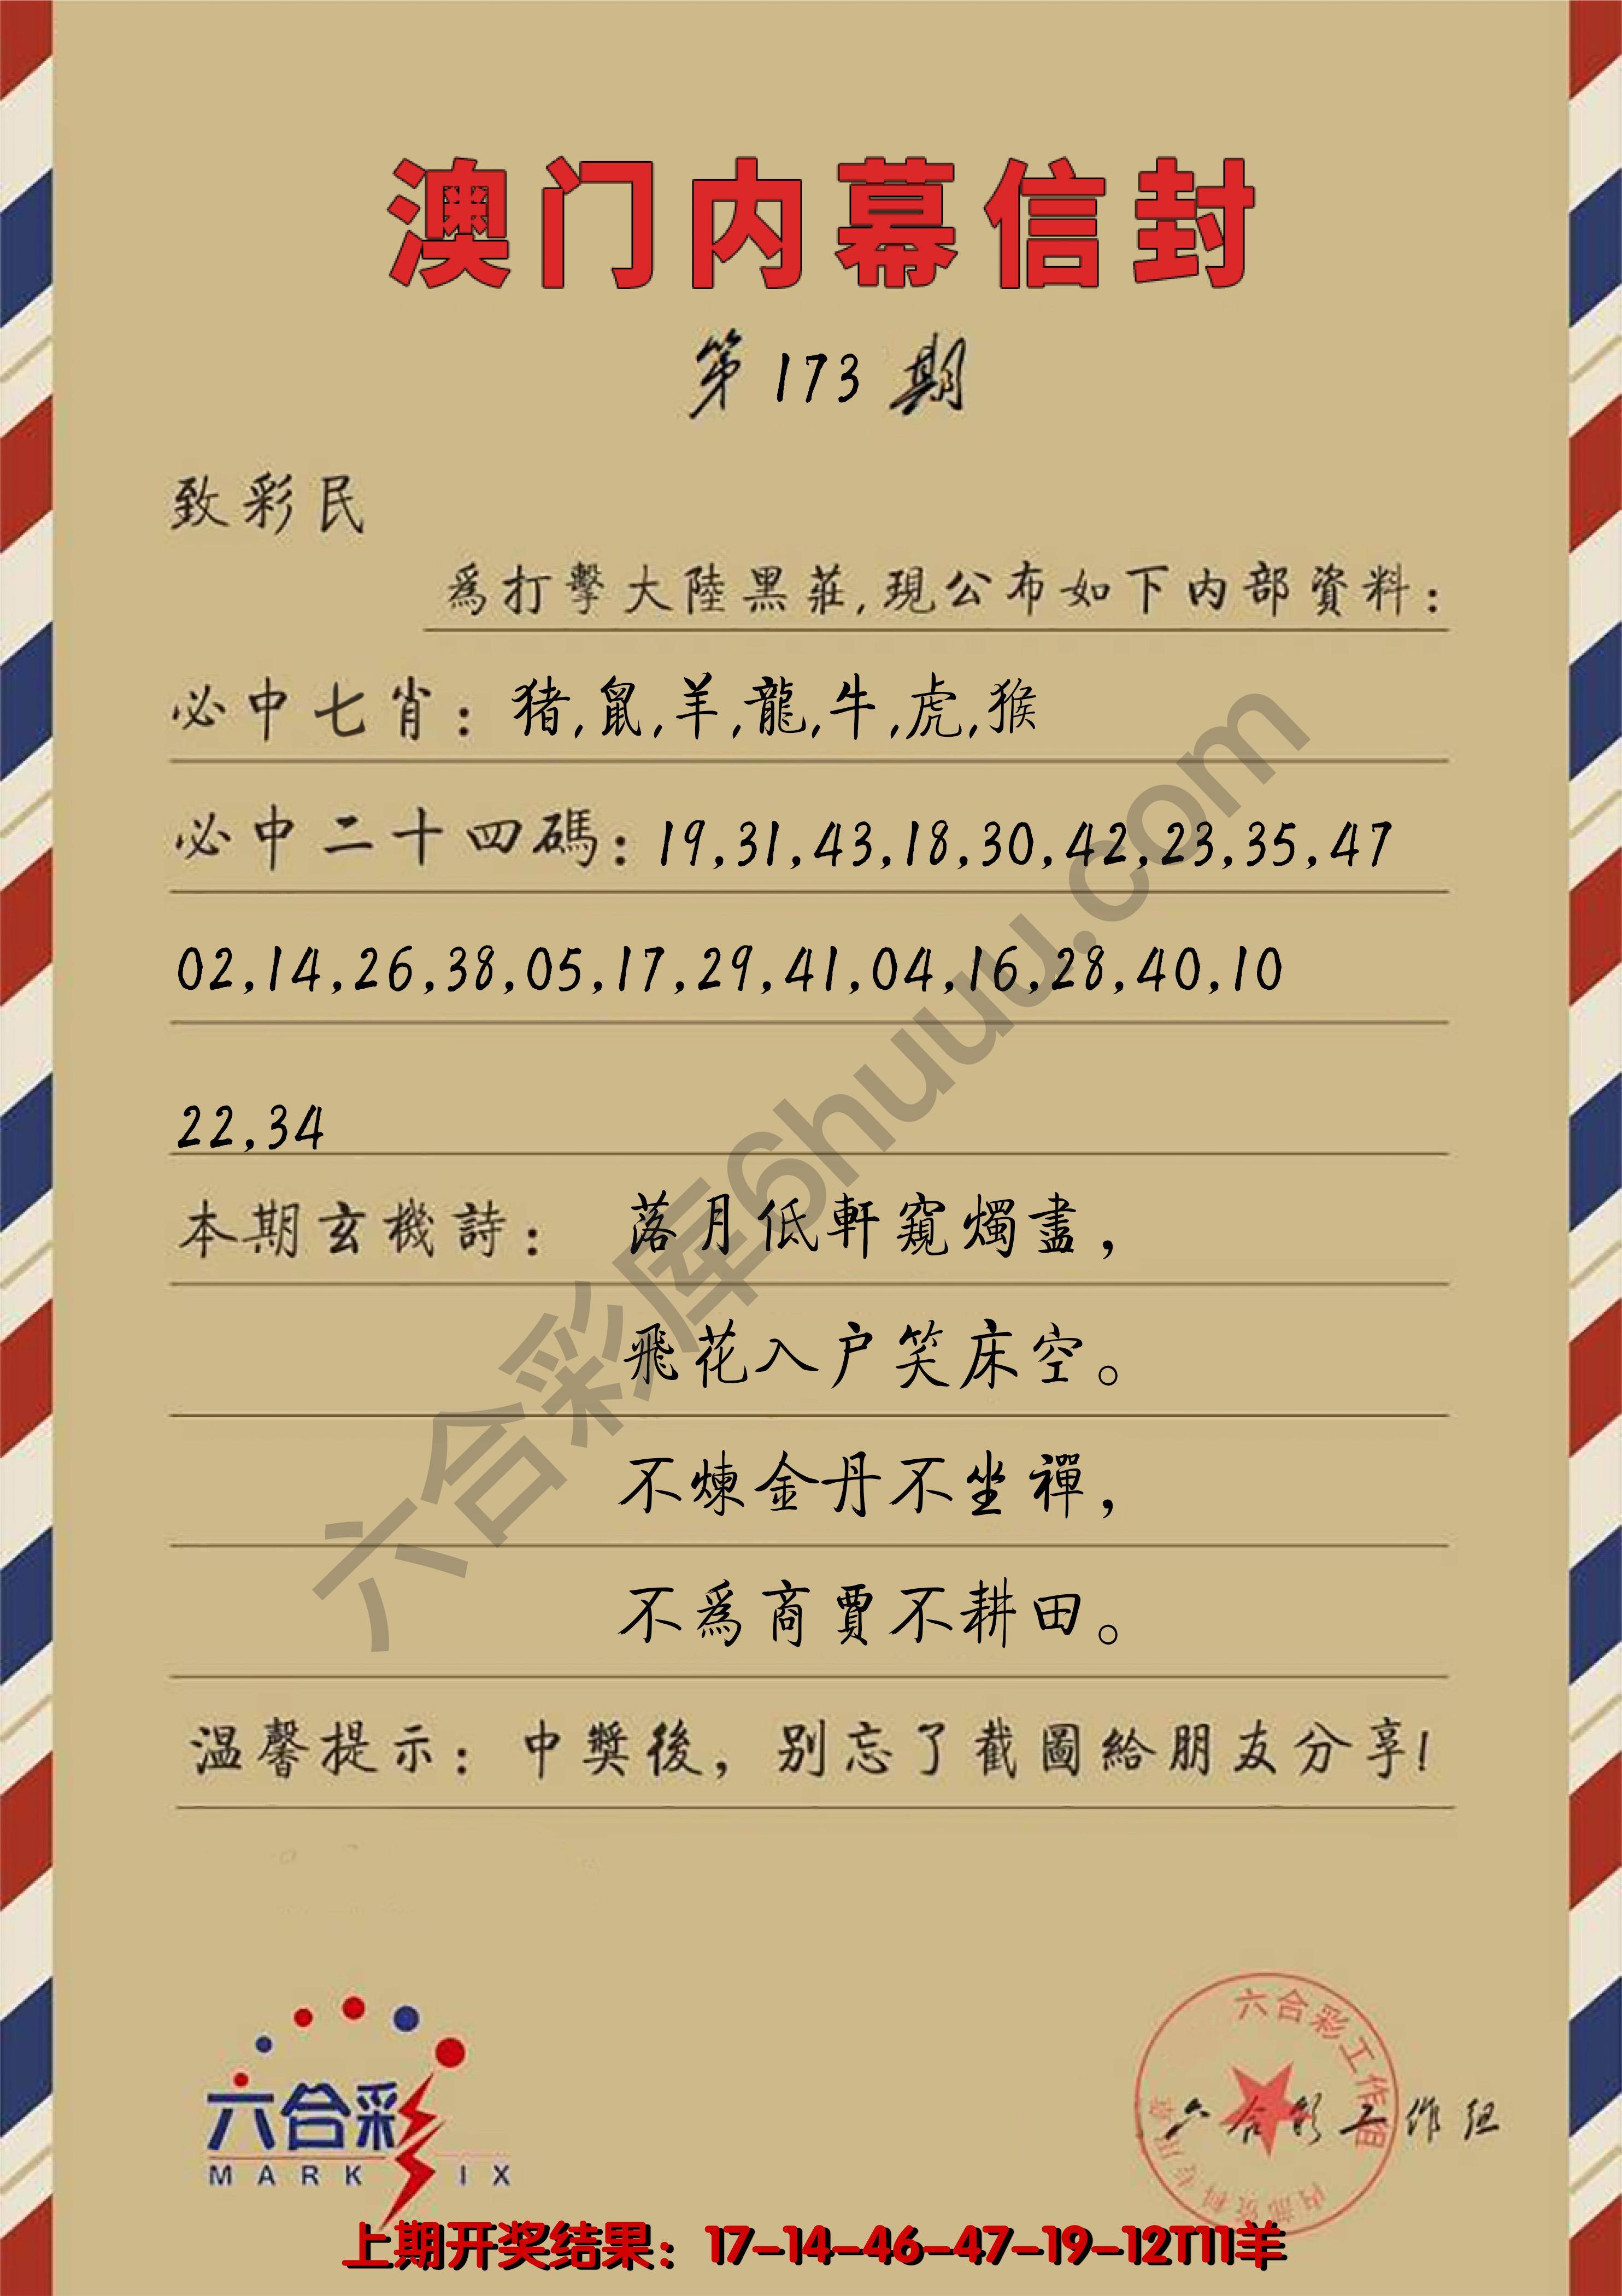 澳门内幕信封
第173期
致彩民
爲打擊大陸黑莊,現公布如下内部資料:
必中七肖:猪,鼠,羊,龍,牛,虎,猴
必中二十四碼:19,31,43,18,30,42,23,35,47
02,14,26,38,05,17,29,41,04,16,28,40,10
22,34
本期玄機詩: 落月低軒窺燭盡,
飛花入户笑床空。
不煉金丹不坐禪,
不爲商賈不耕田。
温馨提示: 中獎後, 别忘了截圖給朋友分享!
六合彩库6huuu.com
六合彩
MARK SIX
六合彩工作组
内部资料专用章
六合彩工作组
上期开奖结果: 17-14-46-47-19-12T11羊